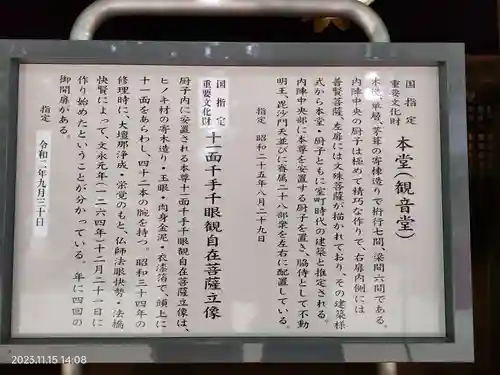 国指定
重要文化財
本堂(観音堂)
木造、単層、茅葺の寄棟造りで桁行七間、梁間六間である。
内陣中央の厨子は極めて精巧な作りで、右扉内側には
普賢菩薩、左扉には文殊菩薩が描かれており、その建築様
式から本堂・厨子ともに室町時代の建築と推定される。
内陣中央部に本尊を安置する厨子を置き、脇侍として不動
明王、毘沙門天並びに眷属二十八部衆を左右に配置している。
指定 昭和二十五年八月二十九日
国指定
重要文化財
十一面千手千眼観自在菩薩立像
厨子内に安置される本尊十一面千手千眼観自在菩薩立像は、
ヒノキ材の寄木造り・玉眼・肉身金泥・衣漆箔で、頭上に
十一面をあらわし、四十二本の腕を持つ。昭和三十四年の
修理時に、大壇那浄成・栄覚のもと、仏師法眼快勢・法橋
快賢によって、文永元年(一二六四年)十二月二十一日に
作り始めたということが分かっている。年に四回の
御開扉がある。
指定 令和二年九月三十日
2025.11.15 14:08